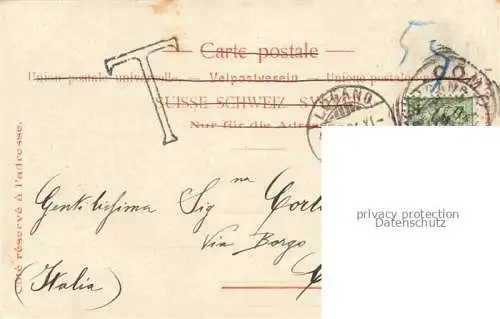 T
Carte postale
Union postale universelle. Weltpostverein Unione postale
SUISSE SCHWEIZ
LUGANO
COMO
Nur für die Adre
Côté réservé à l'adresse.
Gentilissima Sig na
Via Borgo
(Italia)
privacy protection
Datenschutz